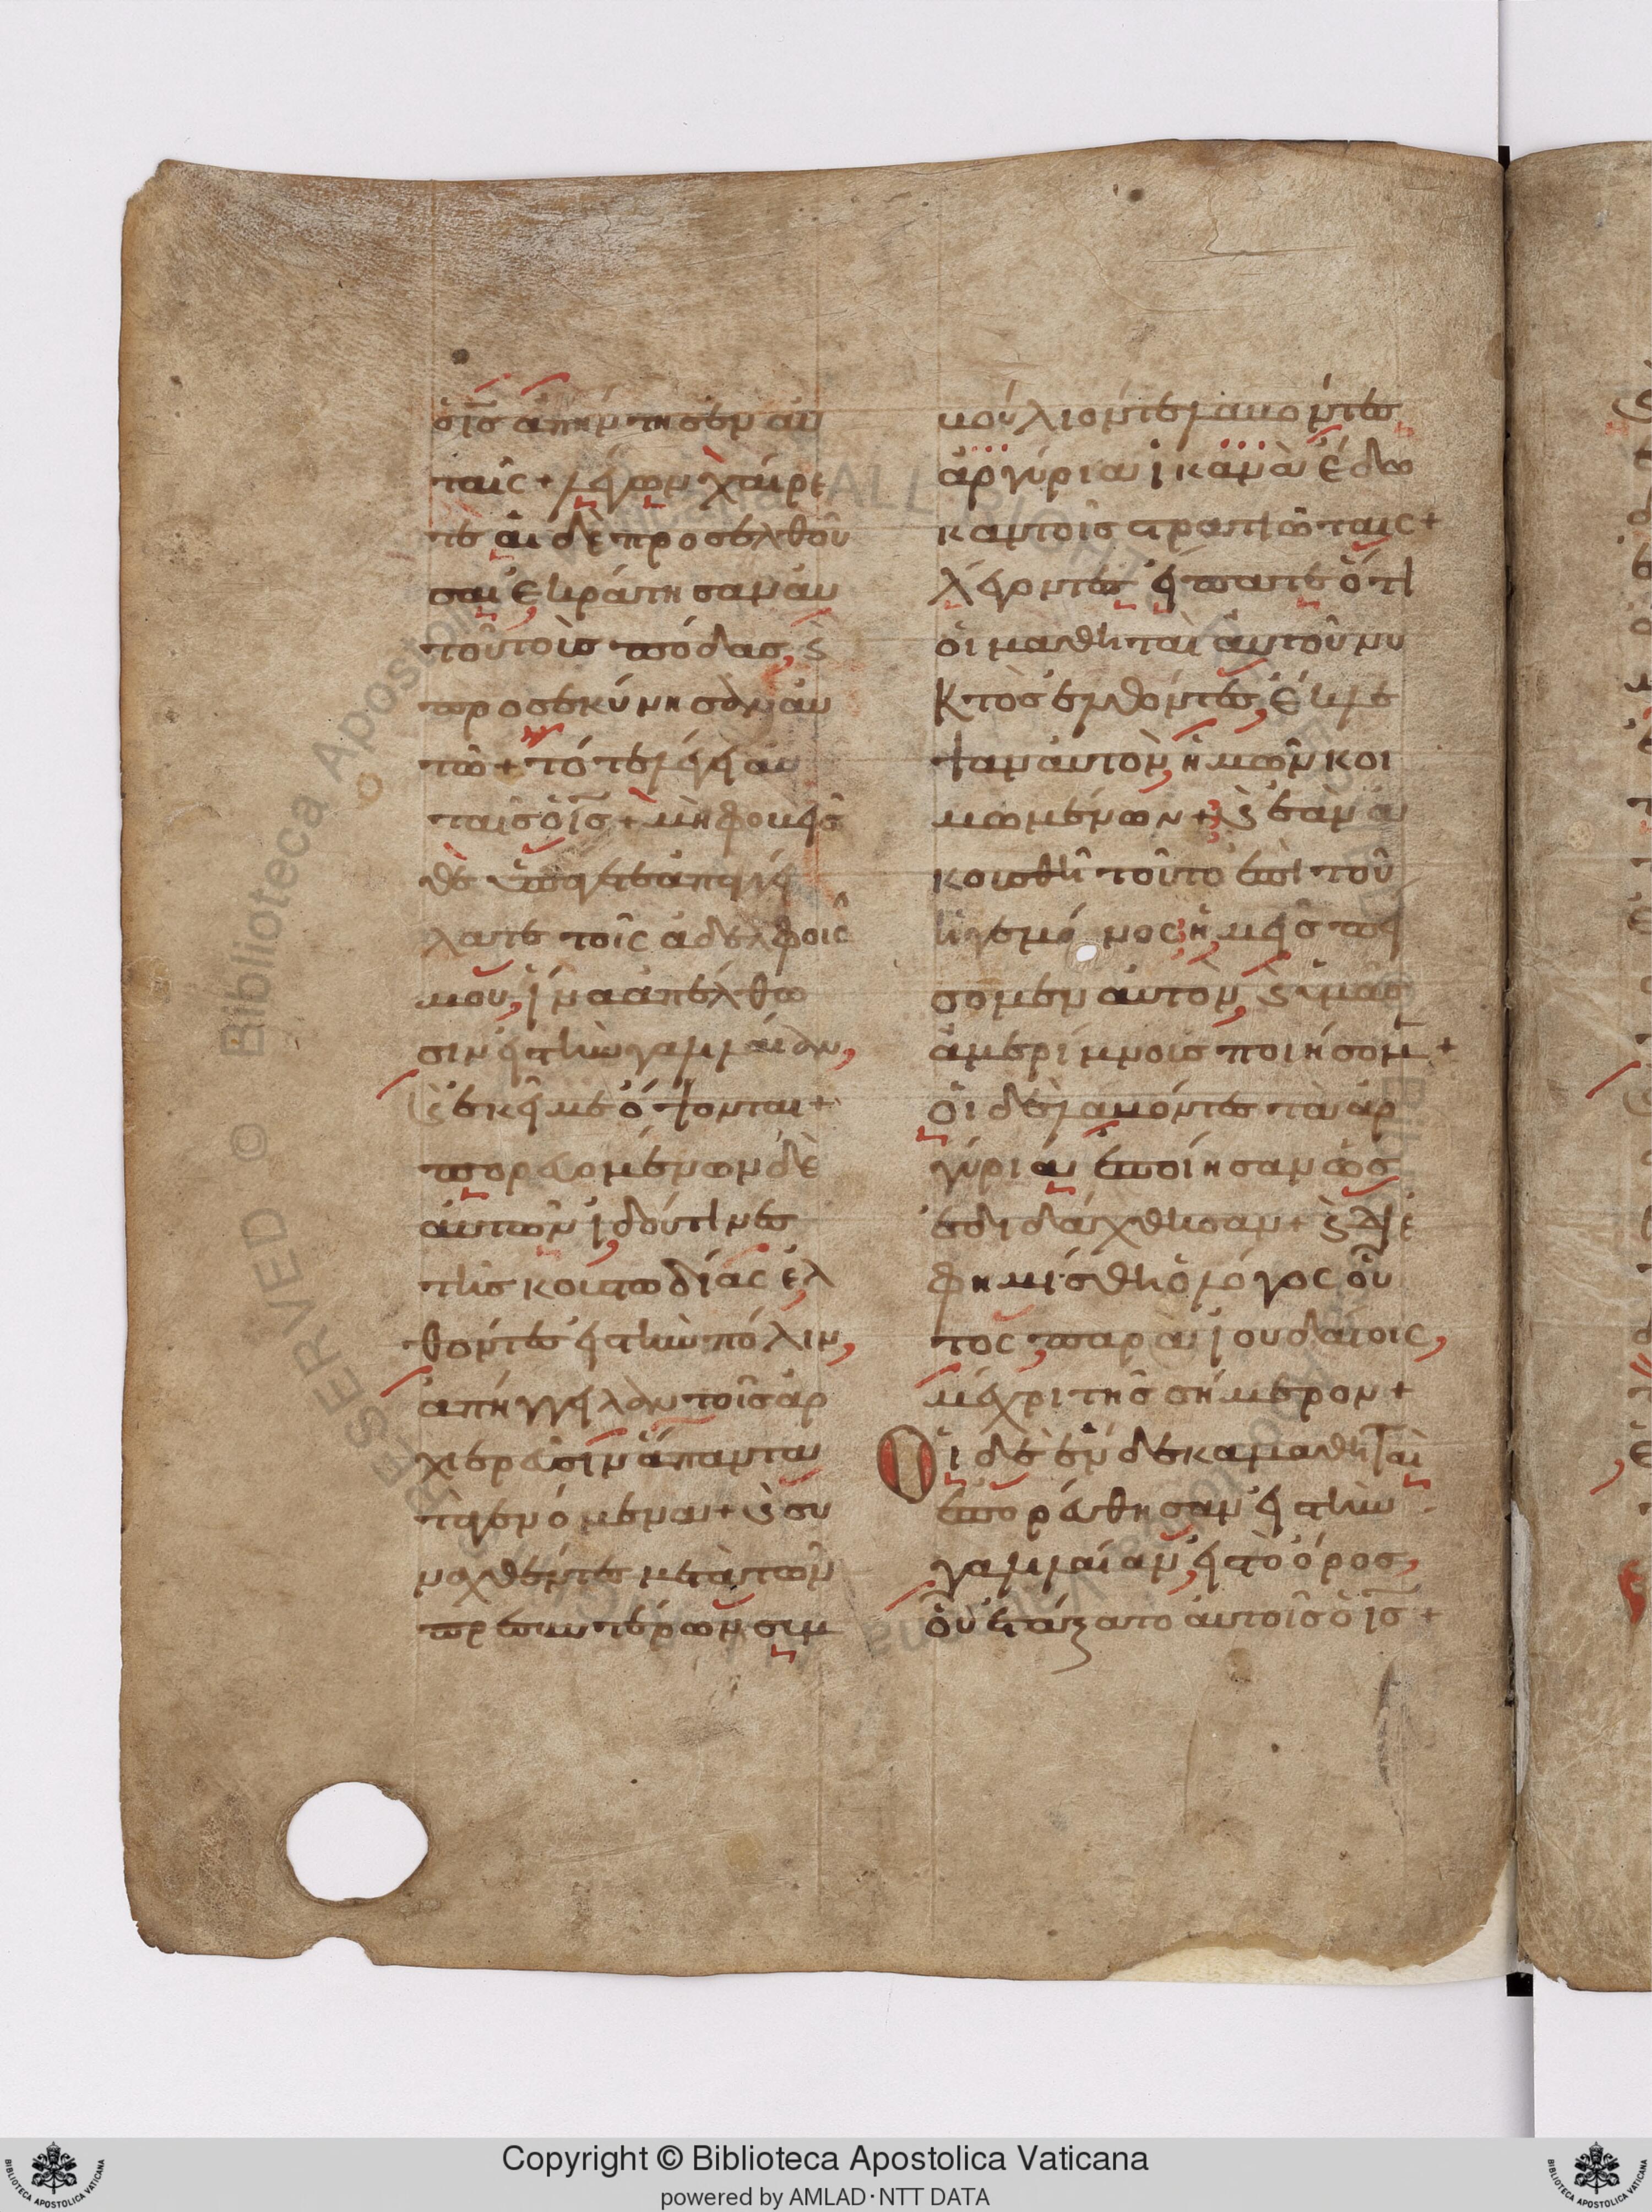 ὁ ις ἀπήντησεν αυ
ταῖς + λέγων χαίρε
τε αἱ δὲ προσελθοῦ
σαι ἐκράτησαν αυ
τοῦ τοὺς πόδας, ϗ
προσεκύνησαν αυ
τῶ + τότε λέγει αυ
ταῖς ὁ ις + μὴ φοβεῖς
θε ὑπάγετε ἀπαγγεί
λατε τοῖς ἀδελφοῖς
μου, ἵνα ἀπέλθω
σιν εἰς τὴν γαλιλαίαν,
ϗ ἐκεῖ με ὄψονται +
πορευομένων δὲ
αὐτῶν ἰδού τινες
τῆς κουστωδίας ἐλ
θόντες εἰς τὴν πόλιν,
ἀπήγγειλαν τοῖς ἀρ
χιερεῦσιν ἅπαντα
τὰ γενόμενα + ϗ συ
ναχθέντες μετὰ τῶν
πρεσβυτέρων συμ
βούλιόν τε λαβόντες
ἀργύρια ἱκανὰ ἔδω
καν τοῖς στρατιώταις +
λέγοντες εἴπατε ὅτι
οἱ μαθηταὶ αὐτοῦ νυ
κτὸς ἐλθόντες, ἔκλε
ψαν αὐτὸν, ἡμῶν κοι
μωμένων + ϗ ἐὰν ἀ
κουσθῆ τοῦτο ἐπὶ τοῦ
ἡγεμόνος, ἡμεῖς πεί
σομεν αὐτὸν, ϗ ὑμᾶς
ἀμερίμνους ποιήσομ +
οἱ δὲ λαβόντες τὰ ἀρ
γύρια ἐποίησαν ὡς
ἐδιδάχθησαν + ϗ διε
φημίσθη ὁ λόγος οὗ
τος, παρὰ ἰουδαίοις,
μέχρι τῆς σήμερον +
Οἱ δὲ ἕνδεκα μαθηταὶ
ἐπορεύθησαν εἰς τὴν
γαλιλαίαν, εἰς τὸ ὄρος,
οὗ ἐτάξατο αὐτοῖς ὁ ις +
Copyright © Biblioteca Apostolica Vaticana
powered by AMLAD·NTT DATA